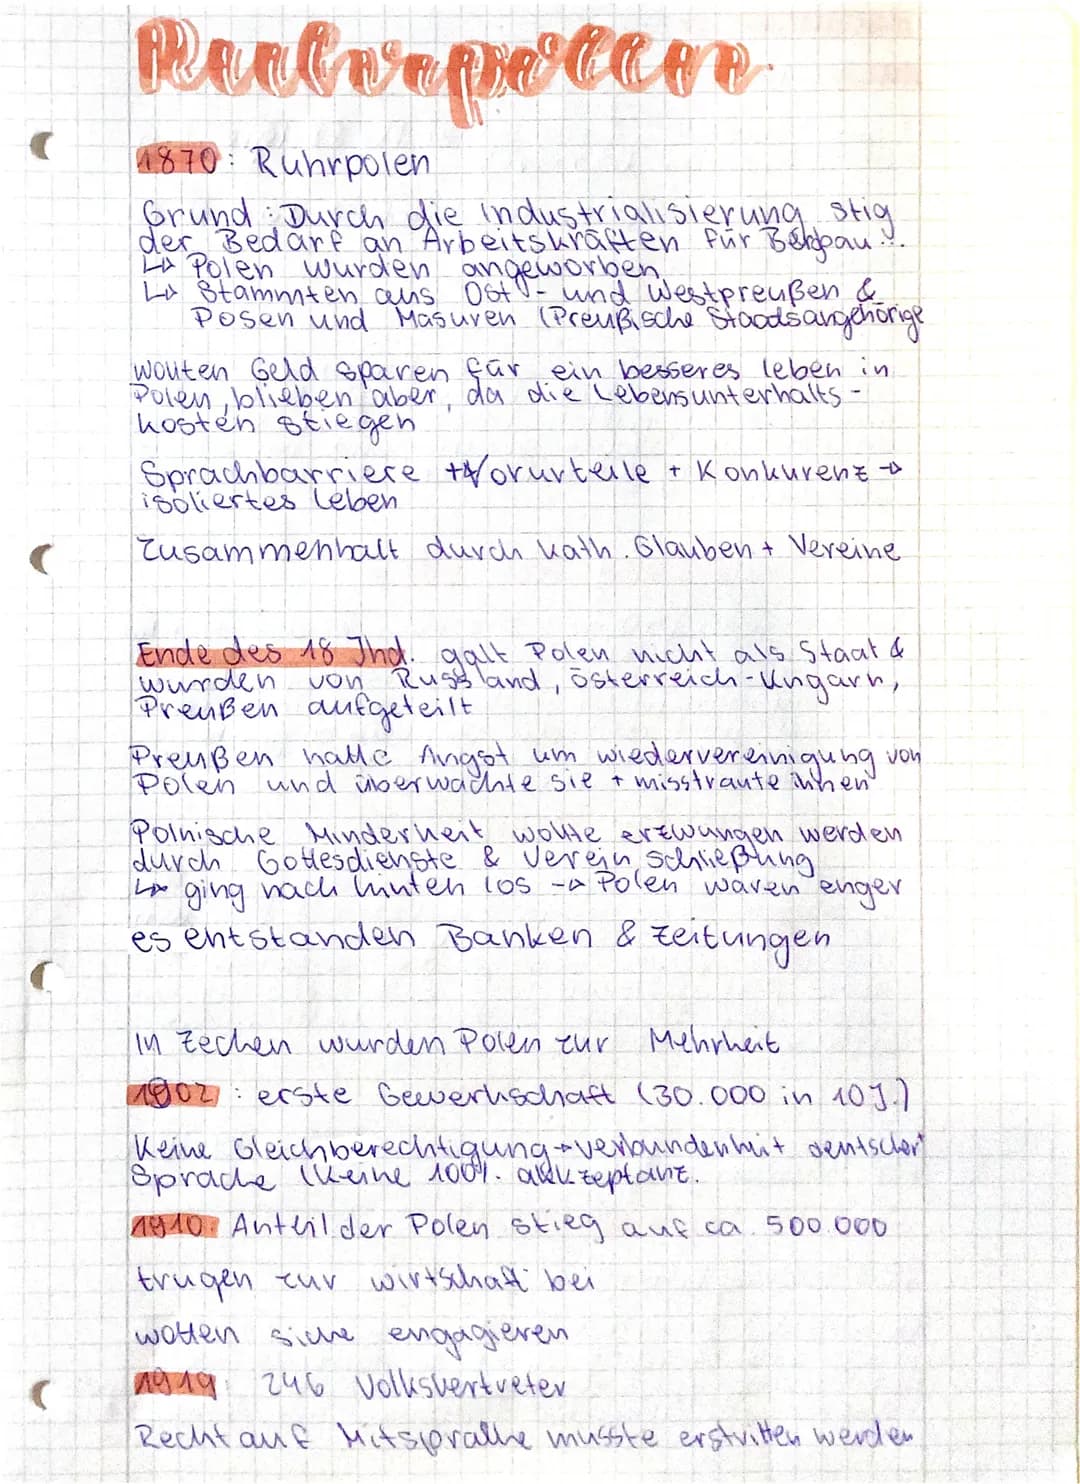 Ruhrpolen
1870: Ruhrpolen
Grund: Durch die Industrialisierung stig
der Bedarf an Arbeitskräften für Bergbau...
↳ Polen wurden angeworben
↳ Stammten aus Ost- und Westpreußen &
Posen und Masuren (Preußische Staatsangehörige
wollten Geld sparen für ein besseres leben in
Polen, blieben aber, da die Lebensunterhalts-
kosten stiegen
Sprachbarriere + Vorurteile + Konkurenz →
isoliertes Leben
Zusammenhalt durch kath. Glauben + Vereine
Ende des 18 Jhd. galt Polen nicht als Staat &
wurden von Russland, Österreich-Ungarn,
Preußen aufgeteilt
Preußen hatte Angst um wiedervereinigung von
Polen und überwachte sie + misstraute ihnen
Polnische Minderheit wollte erzwungen werden
durch Gottesdienste & Verein schließung
↳ ging nach hinten los → Polen waren enger
es entstanden Banken & Zeitungen
In Zechen wurden Polen zur Mehrheit
1902: erste Gewerkschaft (30.000 in 10 J.)
Keine Gleichberechtigung → verbundenheit deutscher
Sprache (Keine 100%. akkzeptanz.
1910: Anteil der Polen stieg auf ca. 500.000
trugen zur wirtschaft bei
wollten siche engagieren
1919: 246 Volksvertreter
Recht auf Mitsprache musste erstritten werden